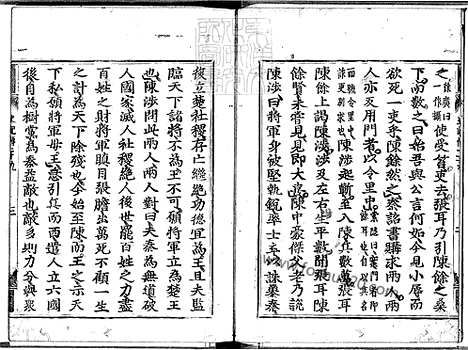 之徐廣曰一作攝使受笞吏去張耳乃引陳餘之桑
下而數之曰始吾與公言何如今見小辱而
欲死一吏乎陳餘然之秦詔書購求兩人兩
人亦反用門者以令里中
陳涉起蘄至入陳兵數萬張耳
陳餘上謁陳涉涉及左右生平數聞張耳陳
餘賢未嘗見見即大喜陳中豪傑父老乃說
陳涉曰將軍身被堅執銳率士卒以誅暴秦
復立楚社稷存亡繼絕功德宜為王且夫監
臨天下諸將不為王不可願將軍立為楚王
也陳涉問此兩人兩人對曰夫秦為無道破
人國家滅人社稷絕人後世罷百姓之力盡
百姓之財將軍瞋目張膽出萬死不顧一生
之計為天下除殘也今始至陳而王之示天
下私願將軍毋王急引兵而西遣人立六國
後自為樹黨為秦益敵也敵多則力分與衆